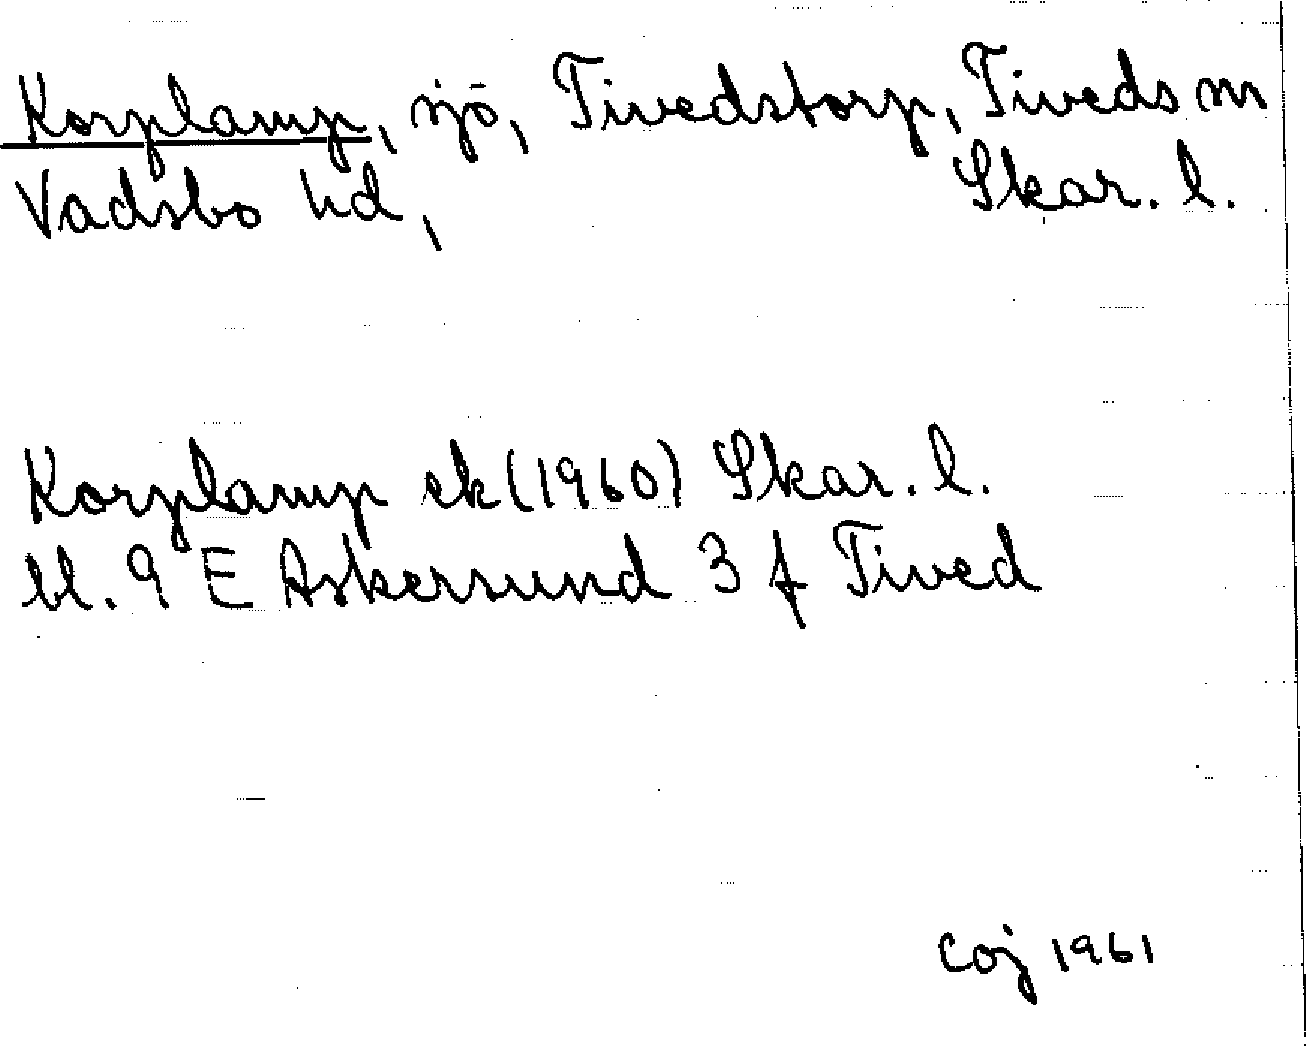 Korplamp, sjö, Tivedstorp, Tiveds sn
Vadsbo hd, Skar. l.
Korplamp ek (1960) Skar. l.
bl. 9 E Askersund 3 f Tived
COJ 1961